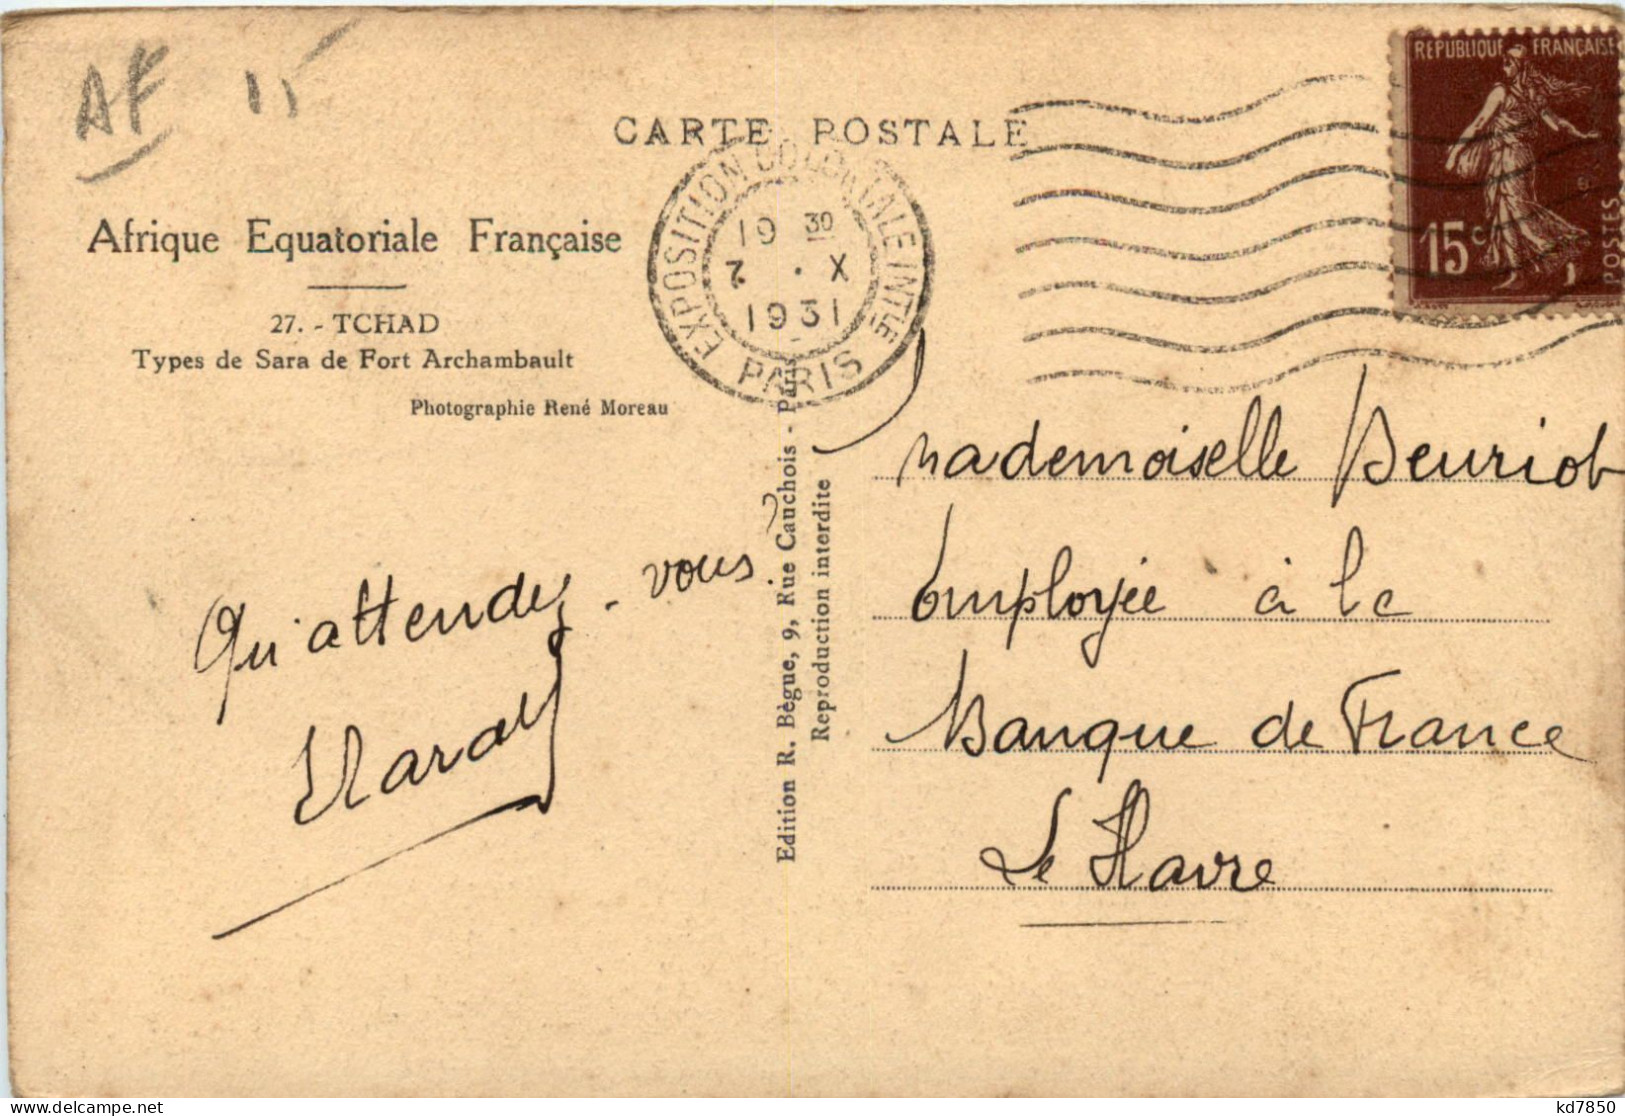 AF 15
CARTE POSTALE
REPUBLIQUE FRANÇAISE
15c
POSTES
EXPOSITION COLONIALE INTLE
19 30
7 . X
1931
PARIS
Afrique Equatoriale Française
27. - TCHAD
Types de Sara de Fort Archambault
Photographie René Moreau
Qu'attendez-vous ?
Edition R. Bègue, 9, Rue Cauchois - Paris
Reproduction interdite
Mademoiselle Beuriot
Employée à la
Banque de France
Le Havre
kd7850